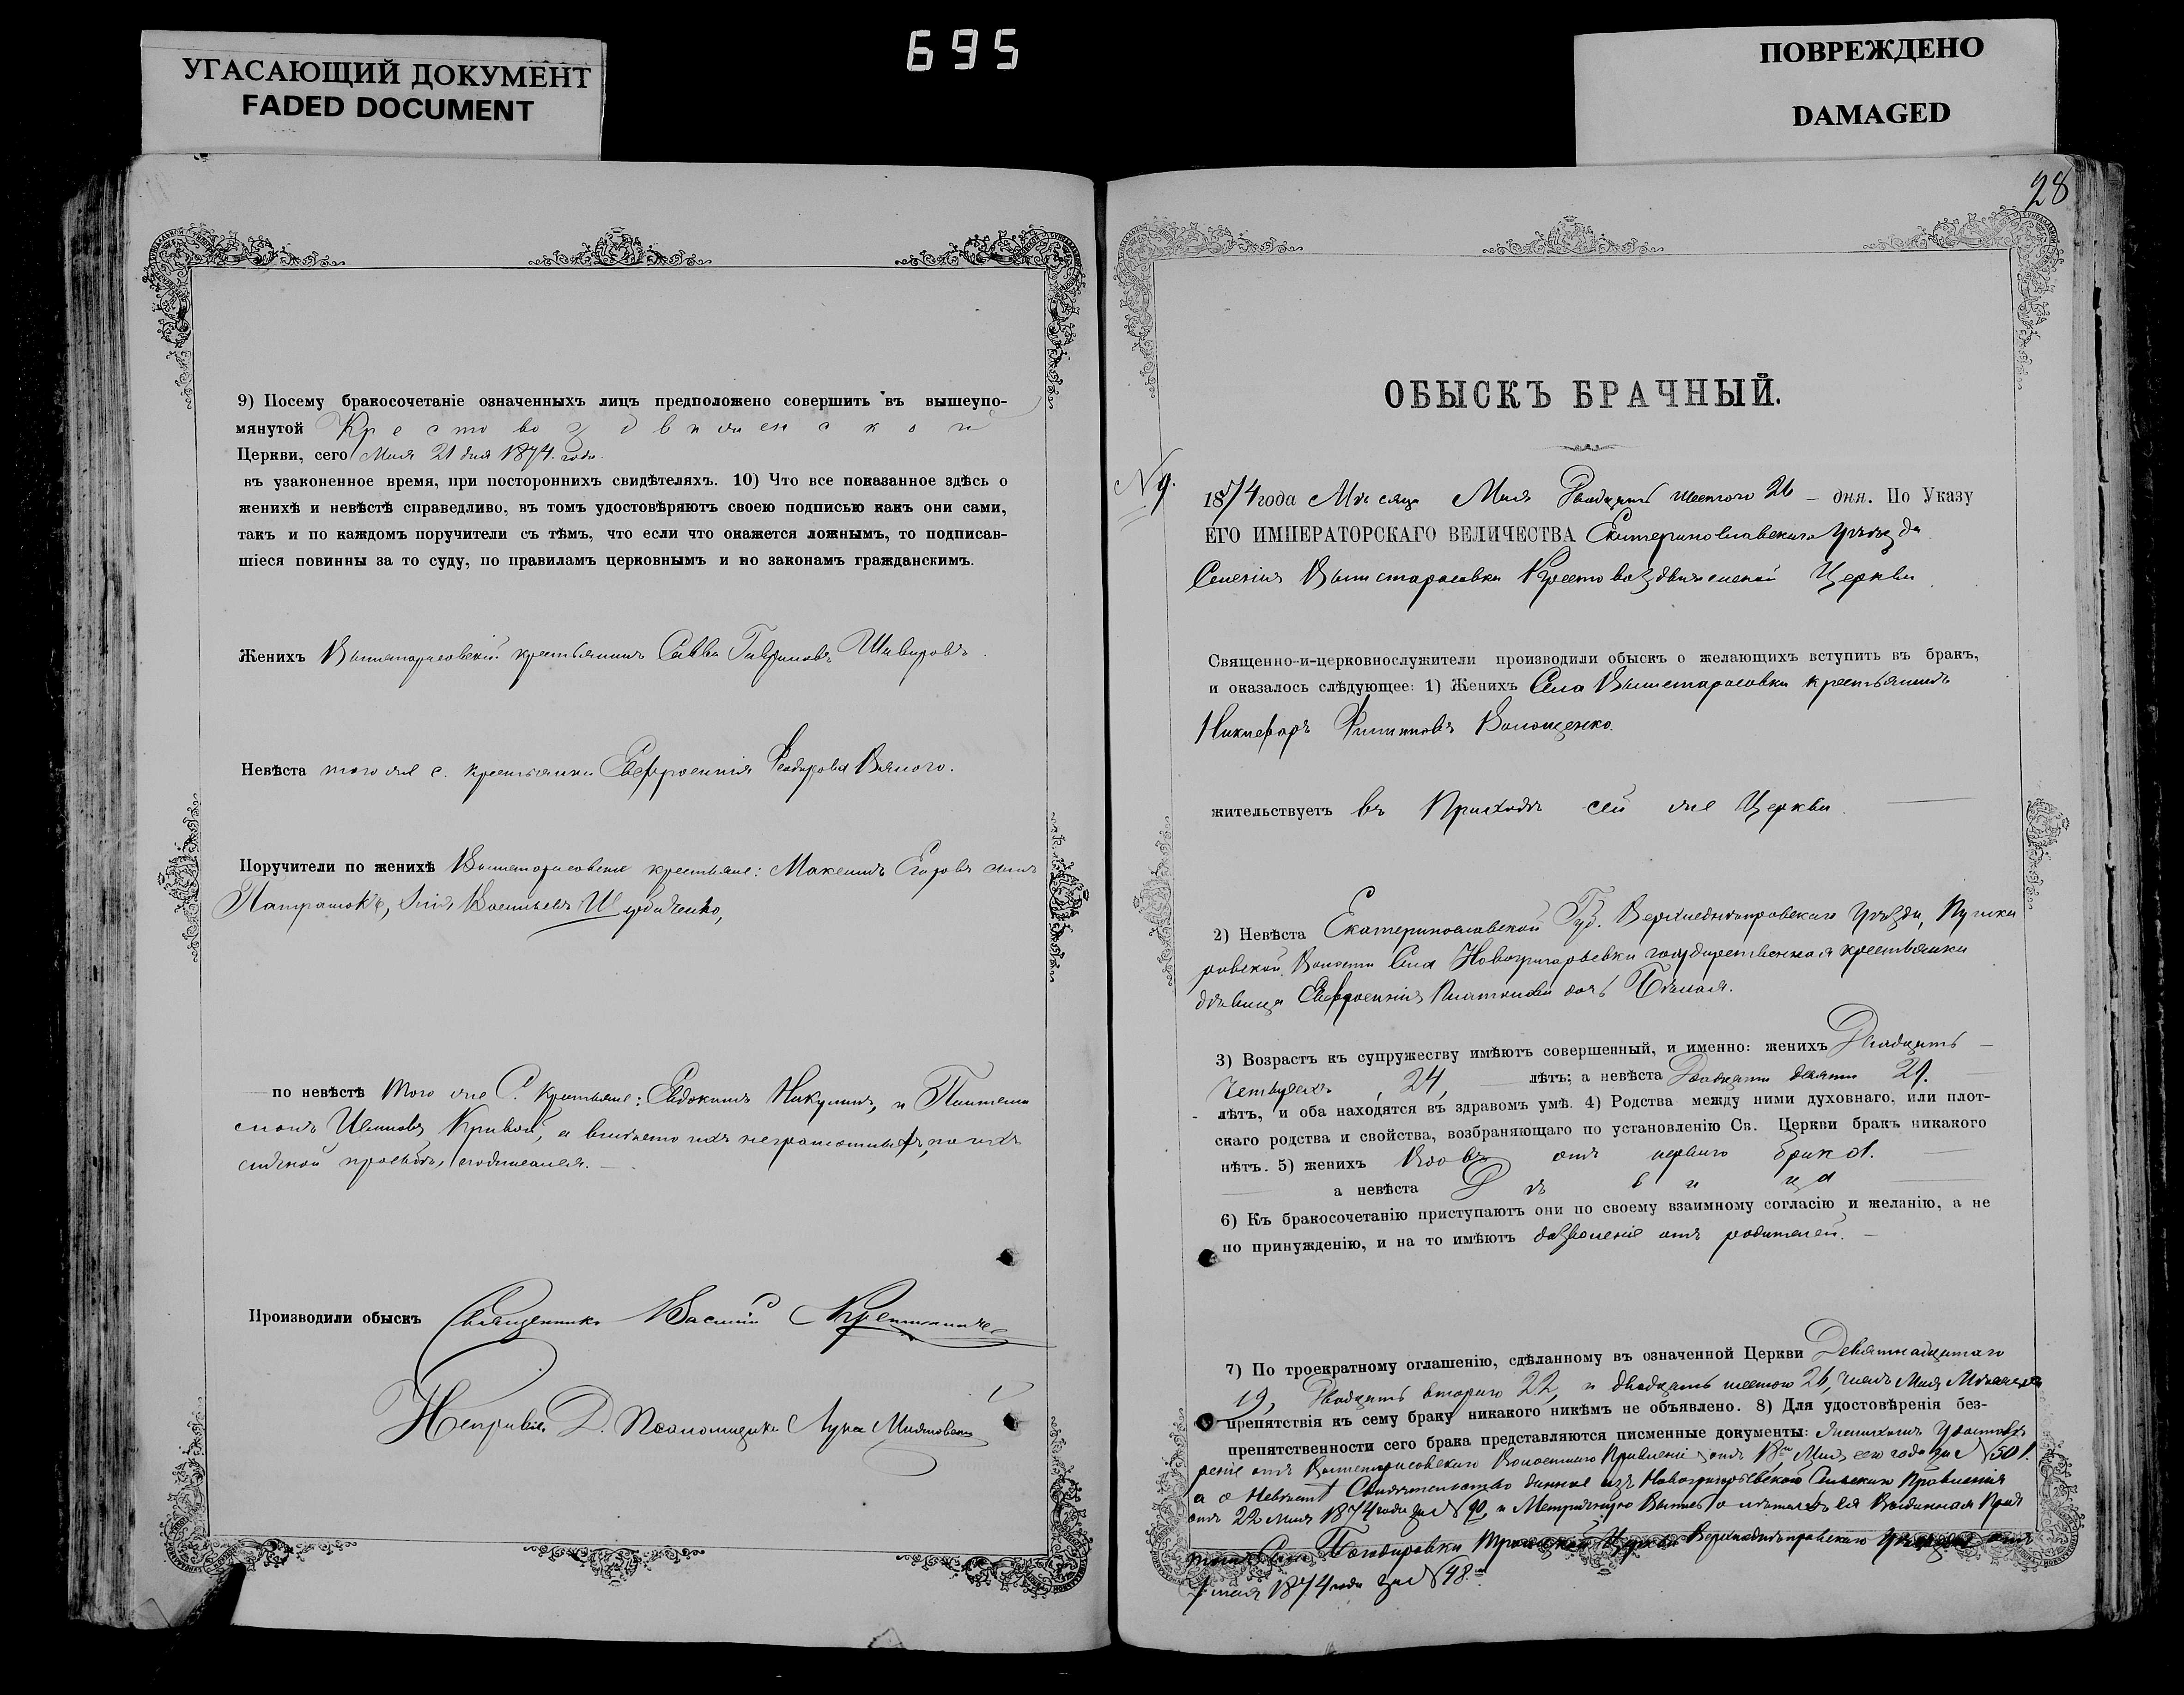 УГАСАЮЩИЙ ДОКУМЕНТ
FADED DOCUMENT
695
ПОВРЕЖДЕНО
DAMAGED
9) Посему бракосочетаніе означенныхъ лицъ предположено совершить въ вышеупо-
мянутой Крестовоздвиженской
Церкви, сего Мая 21 дня 1874 года.
въ узаконенное время, при постороннихъ свидѣтеляхъ. 10) Что все показанное здѣсь о
женихѣ и невѣстѣ справедливо, въ томъ удостовѣряютъ своею подписью какъ они сами,
такъ и по каждомъ поручители съ тѣмъ, что если что окажется ложнымъ, то подписав-
шіеся повинны за то суду, по правиламъ церковнымъ и по законамъ гражданскимъ.
Женихъ Вышетарасовскій крестьянинъ Савва Гавриловъ
Невѣста того же с. крестьянка Евфросинія Феодорова
Поручители по женихѣ Вышетарасовскіе крестьяне: Максимъ Егоровъ сынъ
Патратокъ, Васильевъ
по невѣстѣ того же С. крестьяне: Евдокимъ Никулинъ, и Пантели
монъ Ивановъ Кривой, а вмѣсто ихъ неграмотныхъ, по ихъ
личной просьбѣ,
Производили обыскъ Священникъ Василій
Псаломщикъ Лука
28
ОБЫСКЪ БРАЧНЫЙ.
N 9.
1874 года Мѣсяца Мая Двадцать шестого 26 – дня. По Указу
ЕГО ИМПЕРАТОРСКАГО ВЕЛИЧЕСТВА Екатеринославскаго Уѣзда
Селенія Вышетарасовки Крестовоздвиженской Церкви
Священно-и-церковнослужители производили обыскъ о желающихъ вступить въ бракъ,
и оказалось слѣдующее: 1) Женихъ Села Вышетарасовки крестьянинъ
Никифоръ Филипповъ Волощенко.
жительствуетъ въ Приходѣ сей же Церкви.
2) Невѣста Екатеринославской Губ. Верхнеднѣпровскаго Уѣзда, Пушка
ровской Волости Села Новогригорьевки государственная крестьянка
дѣвица Евфросинія Платонова дочь Бѣлая.
3) Возрастъ къ супружеству имѣютъ совершенный, и именно: женихъ Двадцать
четырехъ, 24, лѣтъ; а невѣста Двадцати девяти 29.
лѣтъ, и оба находятся въ здравомъ умѣ. 4) Родства между ними духовнаго, или плот-
скаго родства и свойства, возбраняющаго по установленію Св. Церкви бракъ никакого
нѣтъ. 5) женихъ Вдовъ отъ перваго брака.
а невѣста Дѣвица
6) Къ бракосочетанію приступаютъ они по своему взаимному согласію и желанію, а не
по принужденію, и на то имѣютъ дозволеніе отъ родителей.
7) По троекратному оглашенію, сдѣланному въ означенной Церкви Девятнадцатаго
19, Двадцать втораго 22, и двадцать шестого 26, чиселъ Мая Мѣсяца
препятствія къ сему браку никакого никѣмъ не объявлено. 8) Для удостовѣренія без-
препятственности сего брака представляются писменные документы: Женихомъ Удостовѣ
реніе отъ Вышетарасовскаго Волостнаго Правленія отъ 18 Мая сего года за N 501.
а о Невѣстѣ Свидѣтельство данное изъ Новогригорьевскаго Сельскаго Правленія
отъ 22 Мая 1874 года за N 90, и Метрическую Выпись о лѣтахъ ея Выданная
Села Троицкой Церкви Верхнеднѣпровскаго Уѣзда отъ
мая 1874 года за N 48.